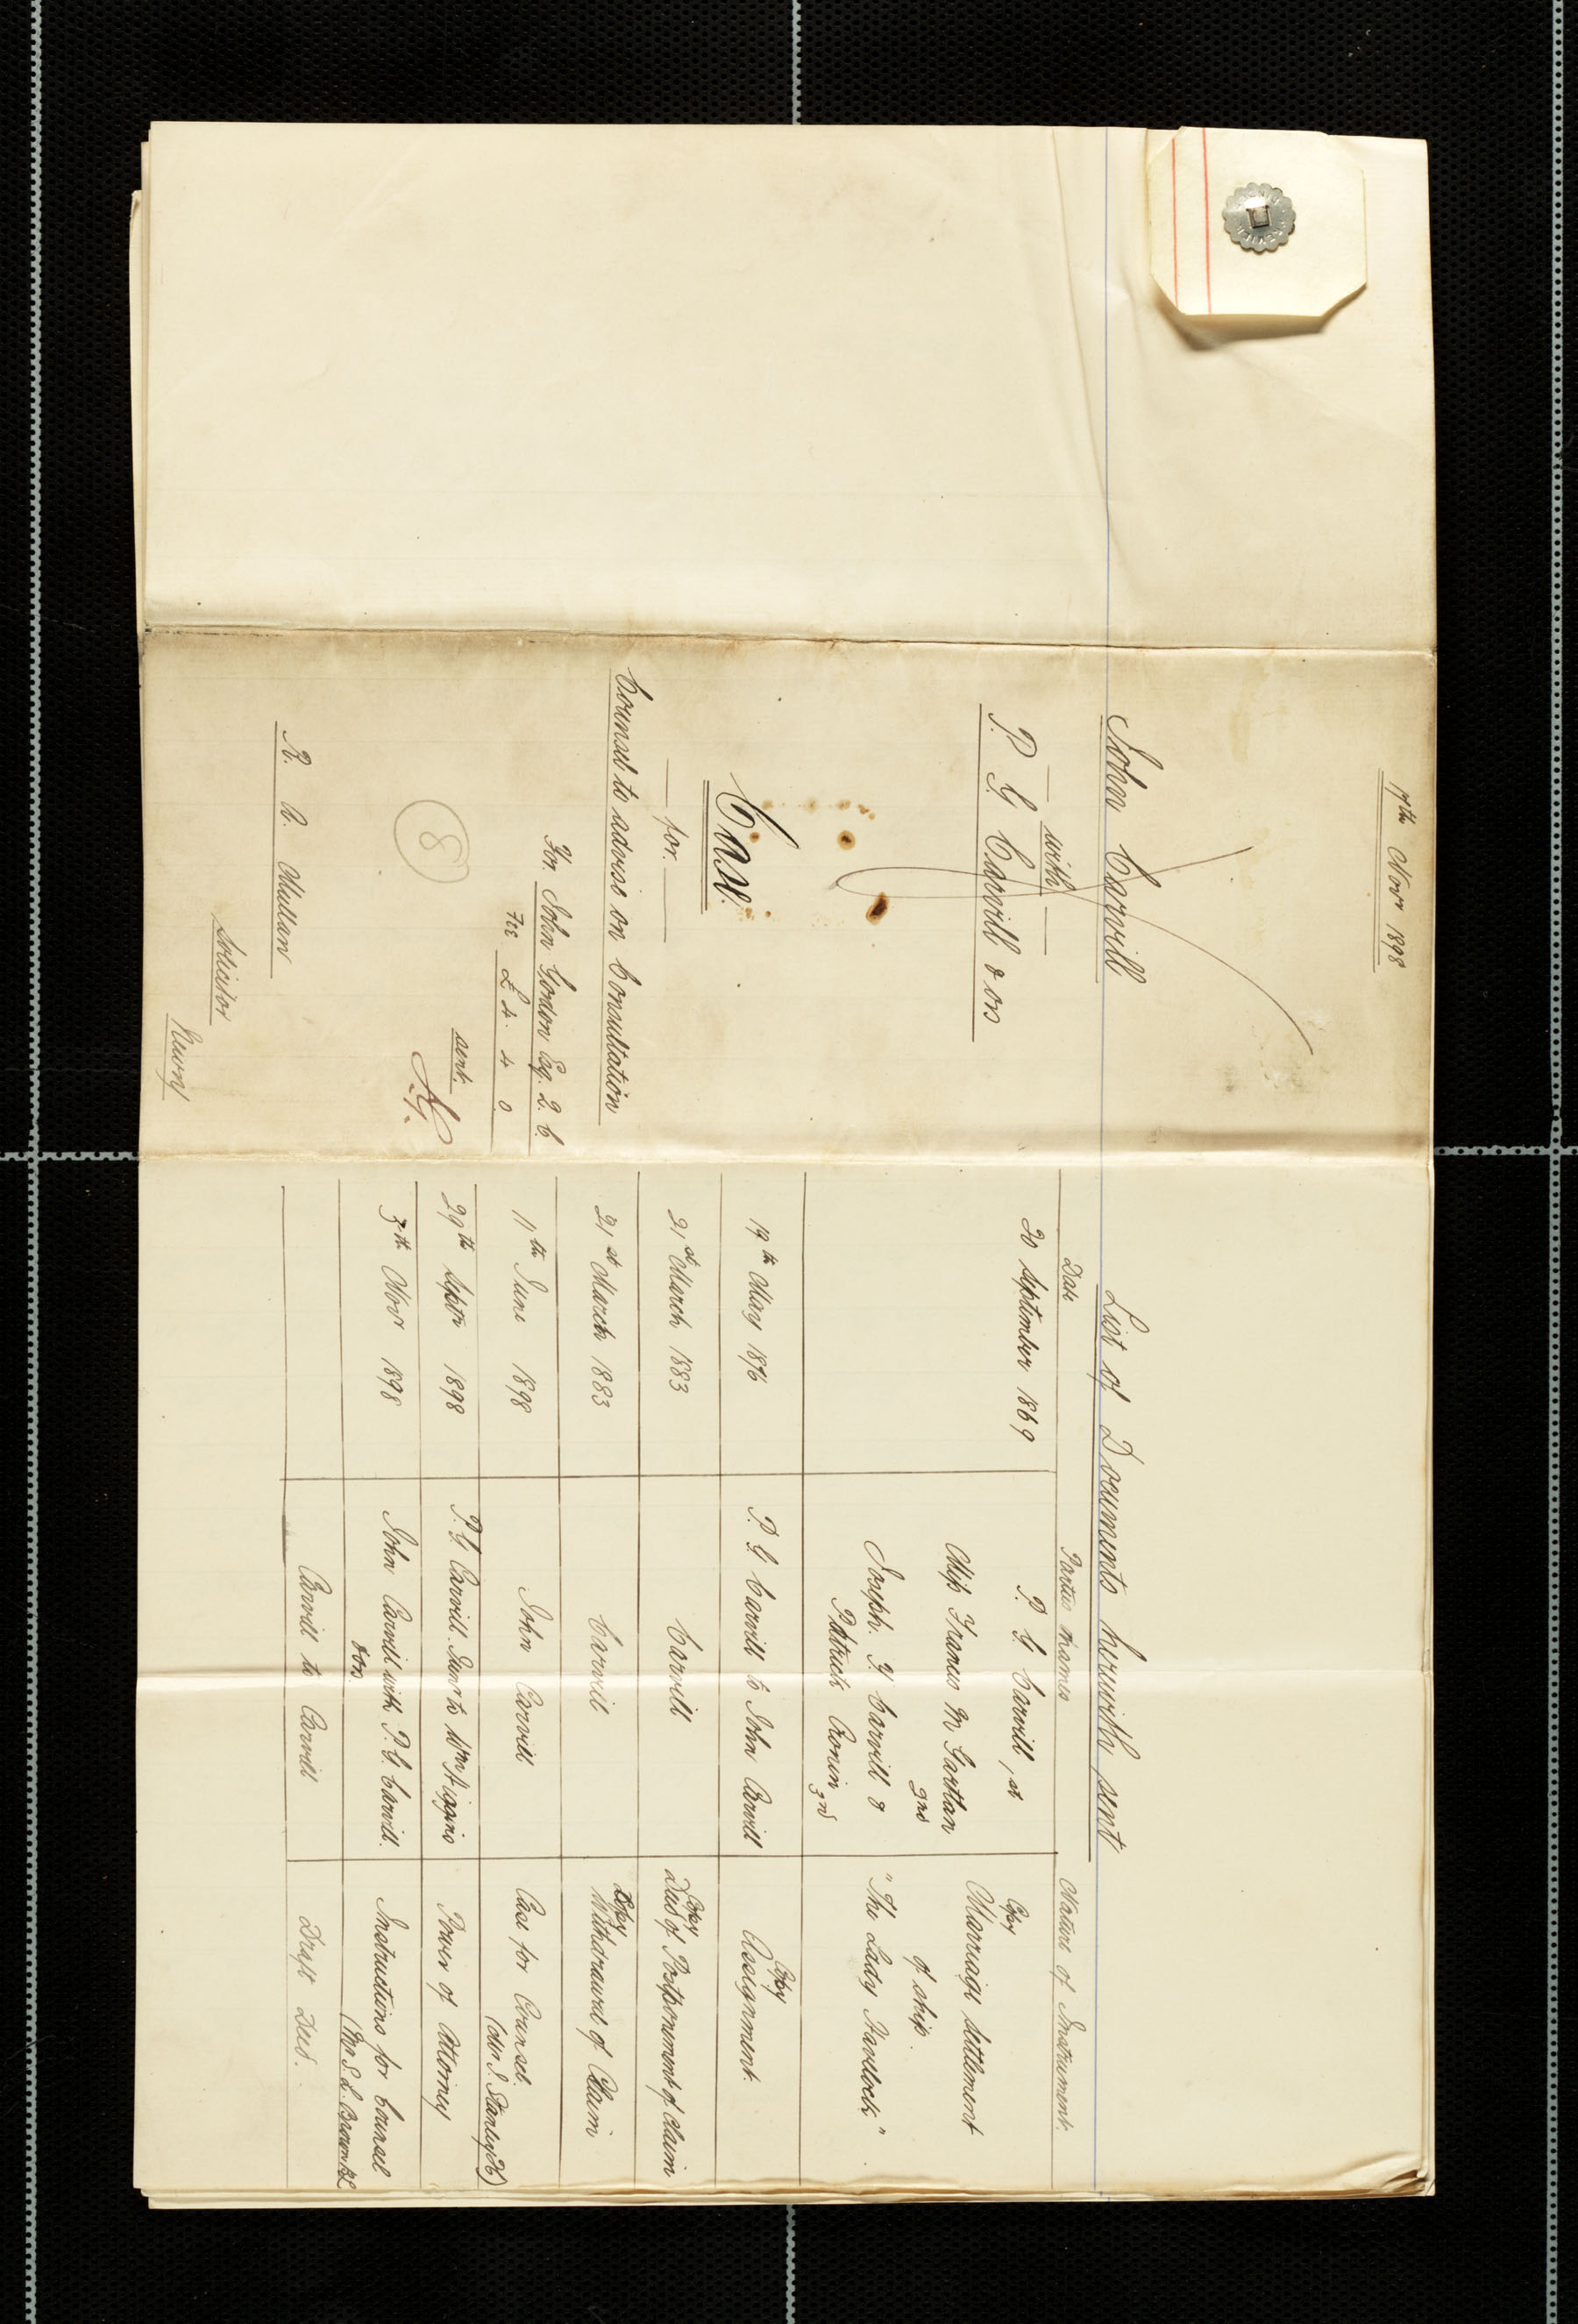 7th Novr 1898
John Carvill
with
P. G Carvill & ors
Case.
for
Counsel to advise on Consultation
For John Gordon Esq. Q. C.
Fee £ 4. 4 0
sent.
8
R. A. Mullan
Solicitor
Newry
List of Documents herewith sent
Date Parties names Nature of Instrument.
20 September 1869 P. G Carvill 1st Copy
Miss Frances M Gartlan Marriage Settlement
2nd of ship.
Joseph. F Carvill & "The Lady Havelock"
Patrick Cronin 3rd
19th May 1896 P. G Carvill to John Carvill Copy Assignment.
21st March 1883 Carvill Copy Deed of Postponement of Claim
21st March 1883 Carvill Copy Withdrawal of Claim
11th June 1898 John Carvill Case for Counsel.
29th Septr 1898 P. G Carvill Junr to Wm Higgins Power of Attorney
3rd Novr 1898 John Carvill with P. G. Carvill. Instructions for Counsel
& ors. (Mr S. L. Brown
Carvill to Carvill Draft Deed.